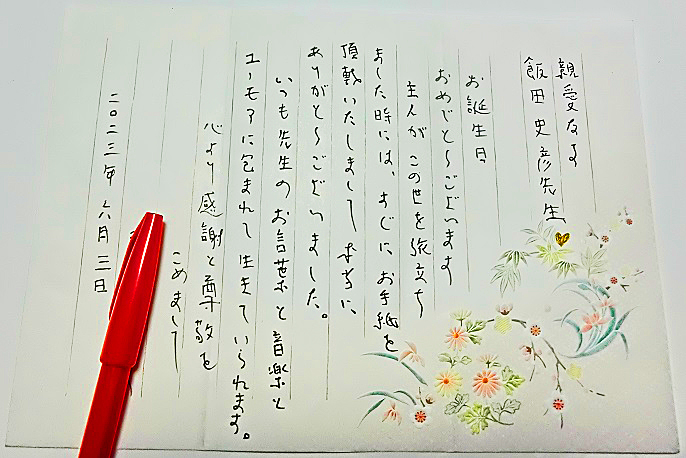 親愛なる
飯田史彦先生
お誕生日
おめでとうございます
主人がこの世を旅立ち
ました時には、すぐにお手紙を
頂戴いたしまして本当に
ありがとうございました。
いつも先生のお言葉と音楽と
ユーモアに包まれて生きていられます。
心より感謝と尊敬を
こめまして
二〇二三年 六月三日